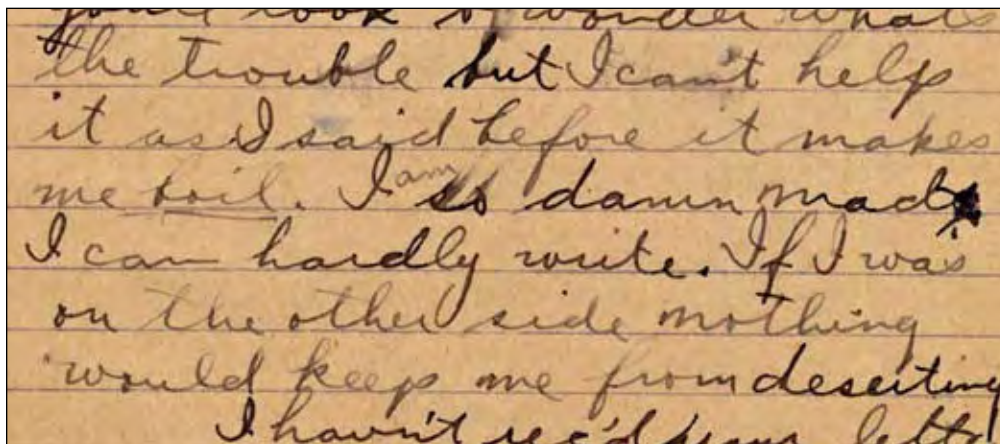 look wonder what's
the trouble but I can't help
it as I said before it makes
me boil. I am so damn mad
I can hardly write. If I was
on the other side nothing
would keep me from deserting
I havn't rec'd your